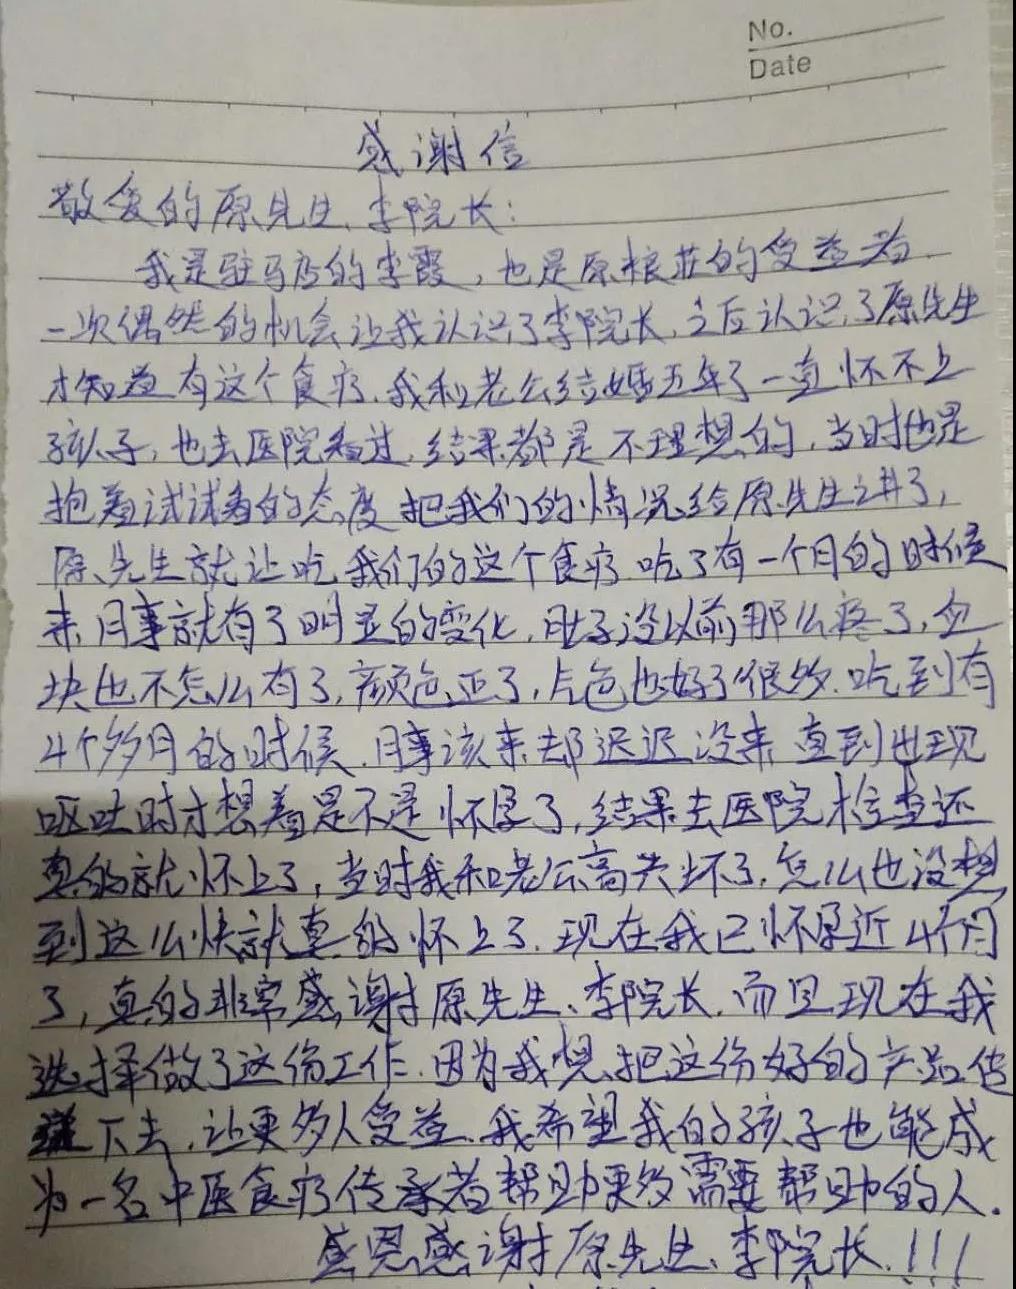 No.
Date
感谢信
敬爱的原先生、李院长:
我是驻马店的李霞,也是原粮庄的受益者.
一次偶然的机会让我认识了李院长,之后认识了原先生
才知道有这个食疗.我和老公结婚五年了一直怀不上
孩子,也去医院看过,结果都是不理想的,当时也是
抱着试试看的态度把我们的情况给原先生讲了,
原先生就让吃我们的这个食疗.吃了有一个月的时候
来月事就有了明显的变化,肚子没以前那么疼了,血
块也不怎么有了,颜色正了,气色也好了很多.吃到有
4个多月的时候.月事该来却迟迟没来直到出现
呕吐时才想着是不是怀孕了,结果去医院检查还
真的就怀上了,当时我和老公高兴坏了,怎么也没想
到这么快就真的怀上了.现在我已怀孕近4个月
了,真的非常感谢原先生、李院长.而且现在我
选择做了这份工作.因为我想把这份好的产品传
下去,让更多人受益.我希望我的孩子也能成
为一名中医食疗传承者帮助更多需要帮助的人.
感恩感谢原先生、李院长.!!!